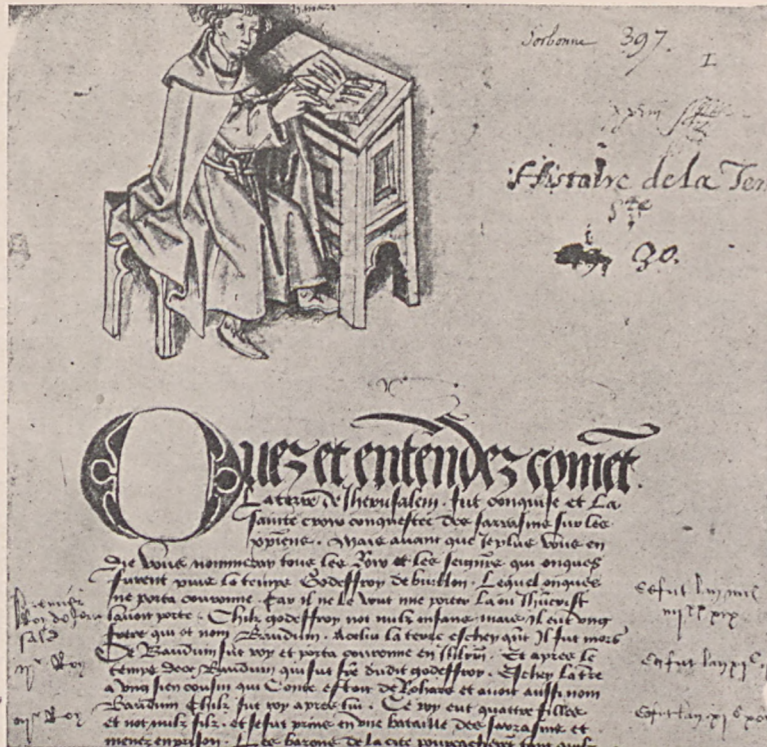 Sorbonne 397.
I
Histoire de la Ter
Ste
30.
Ouez et entendez comẽt
La terre de Jherusalem. fut conquise et La
sainte croix conquestee des sarrasins sur les
xpiens. Mais auant que Je plus vous en
die vous nommeray tous les Roys et les seigneurs qui onques
furent puis le temps Godeffroy de buillon. Lequel onques
ne porta couronne. Car il ne le vout mie porter La ou Jhucrist
lauoit porte. Chilz godeffroy not nulz enfans mais Il eut vng
frere qui ot nom Bauduin. A celui la terre eschey quant Il fut mors
Ce Bauduin fut roy et porta couronne en Jhlrm. Et apres le
temps de ce Bauduin qui fut frere dudit godeffroy. Eschey la tre
a vng sien cousin qui Conte estoit de Rohais et auoit aussi nom
Bauduin Chilz fut roy apres lui. Ce roy eut quattre filles
et not nulz filz. et se fut prins en vne bataille des sarrasins et
menez en prison. Les barons de la cite
Premier
Roy de Jeru
salem
ijᵉ Roy
iijᵉ Roy
Ce fut lan mil